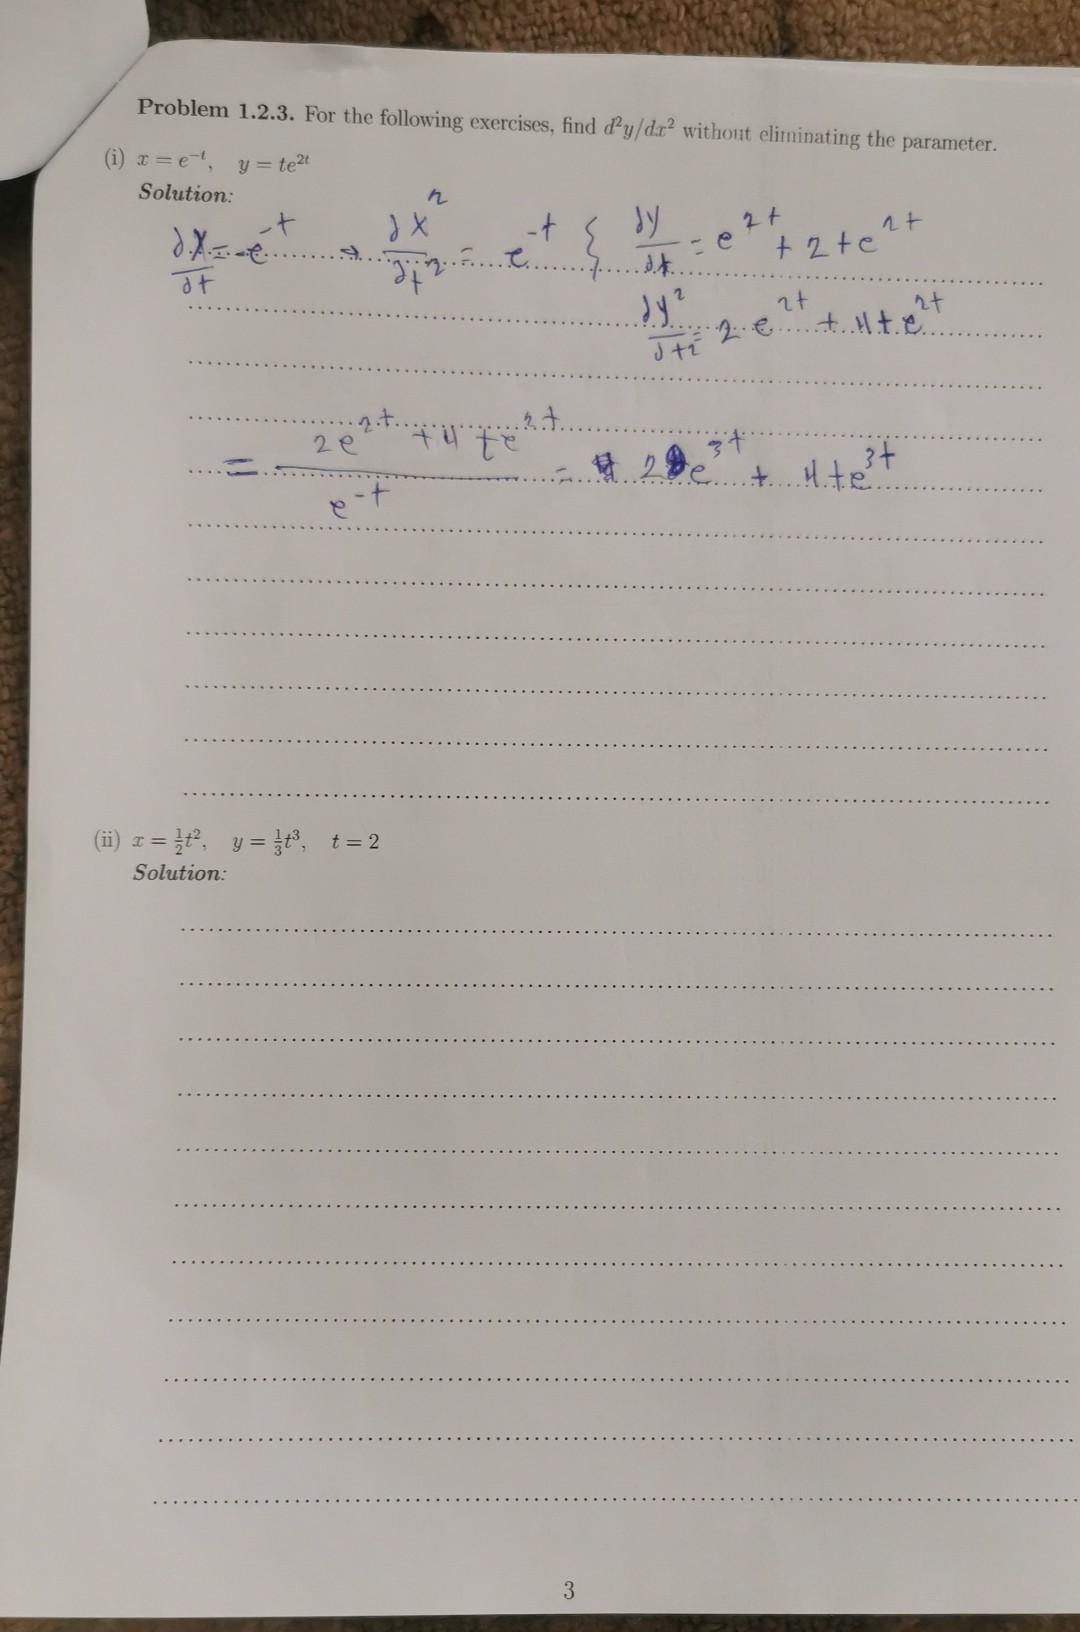 Problem 1.2.3. For the following exercises, find d²y/dx² without eliminating the parameter.
(i) x = e⁻ᵗ, y = te²ᵗ
Solution:
dx/dt = -e⁻ᵗ → dx²/dt² = e⁻ᵗ } dy/dt = e²ᵗ + 2te²ᵗ
dy²/dt² = 2e²ᵗ + 4te²ᵗ
= (2e²ᵗ + 4te²ᵗ)/e⁻ᵗ = 2e³ᵗ + 4te³ᵗ
(ii) x = ½t², y = ⅓t³, t = 2
Solution:
3